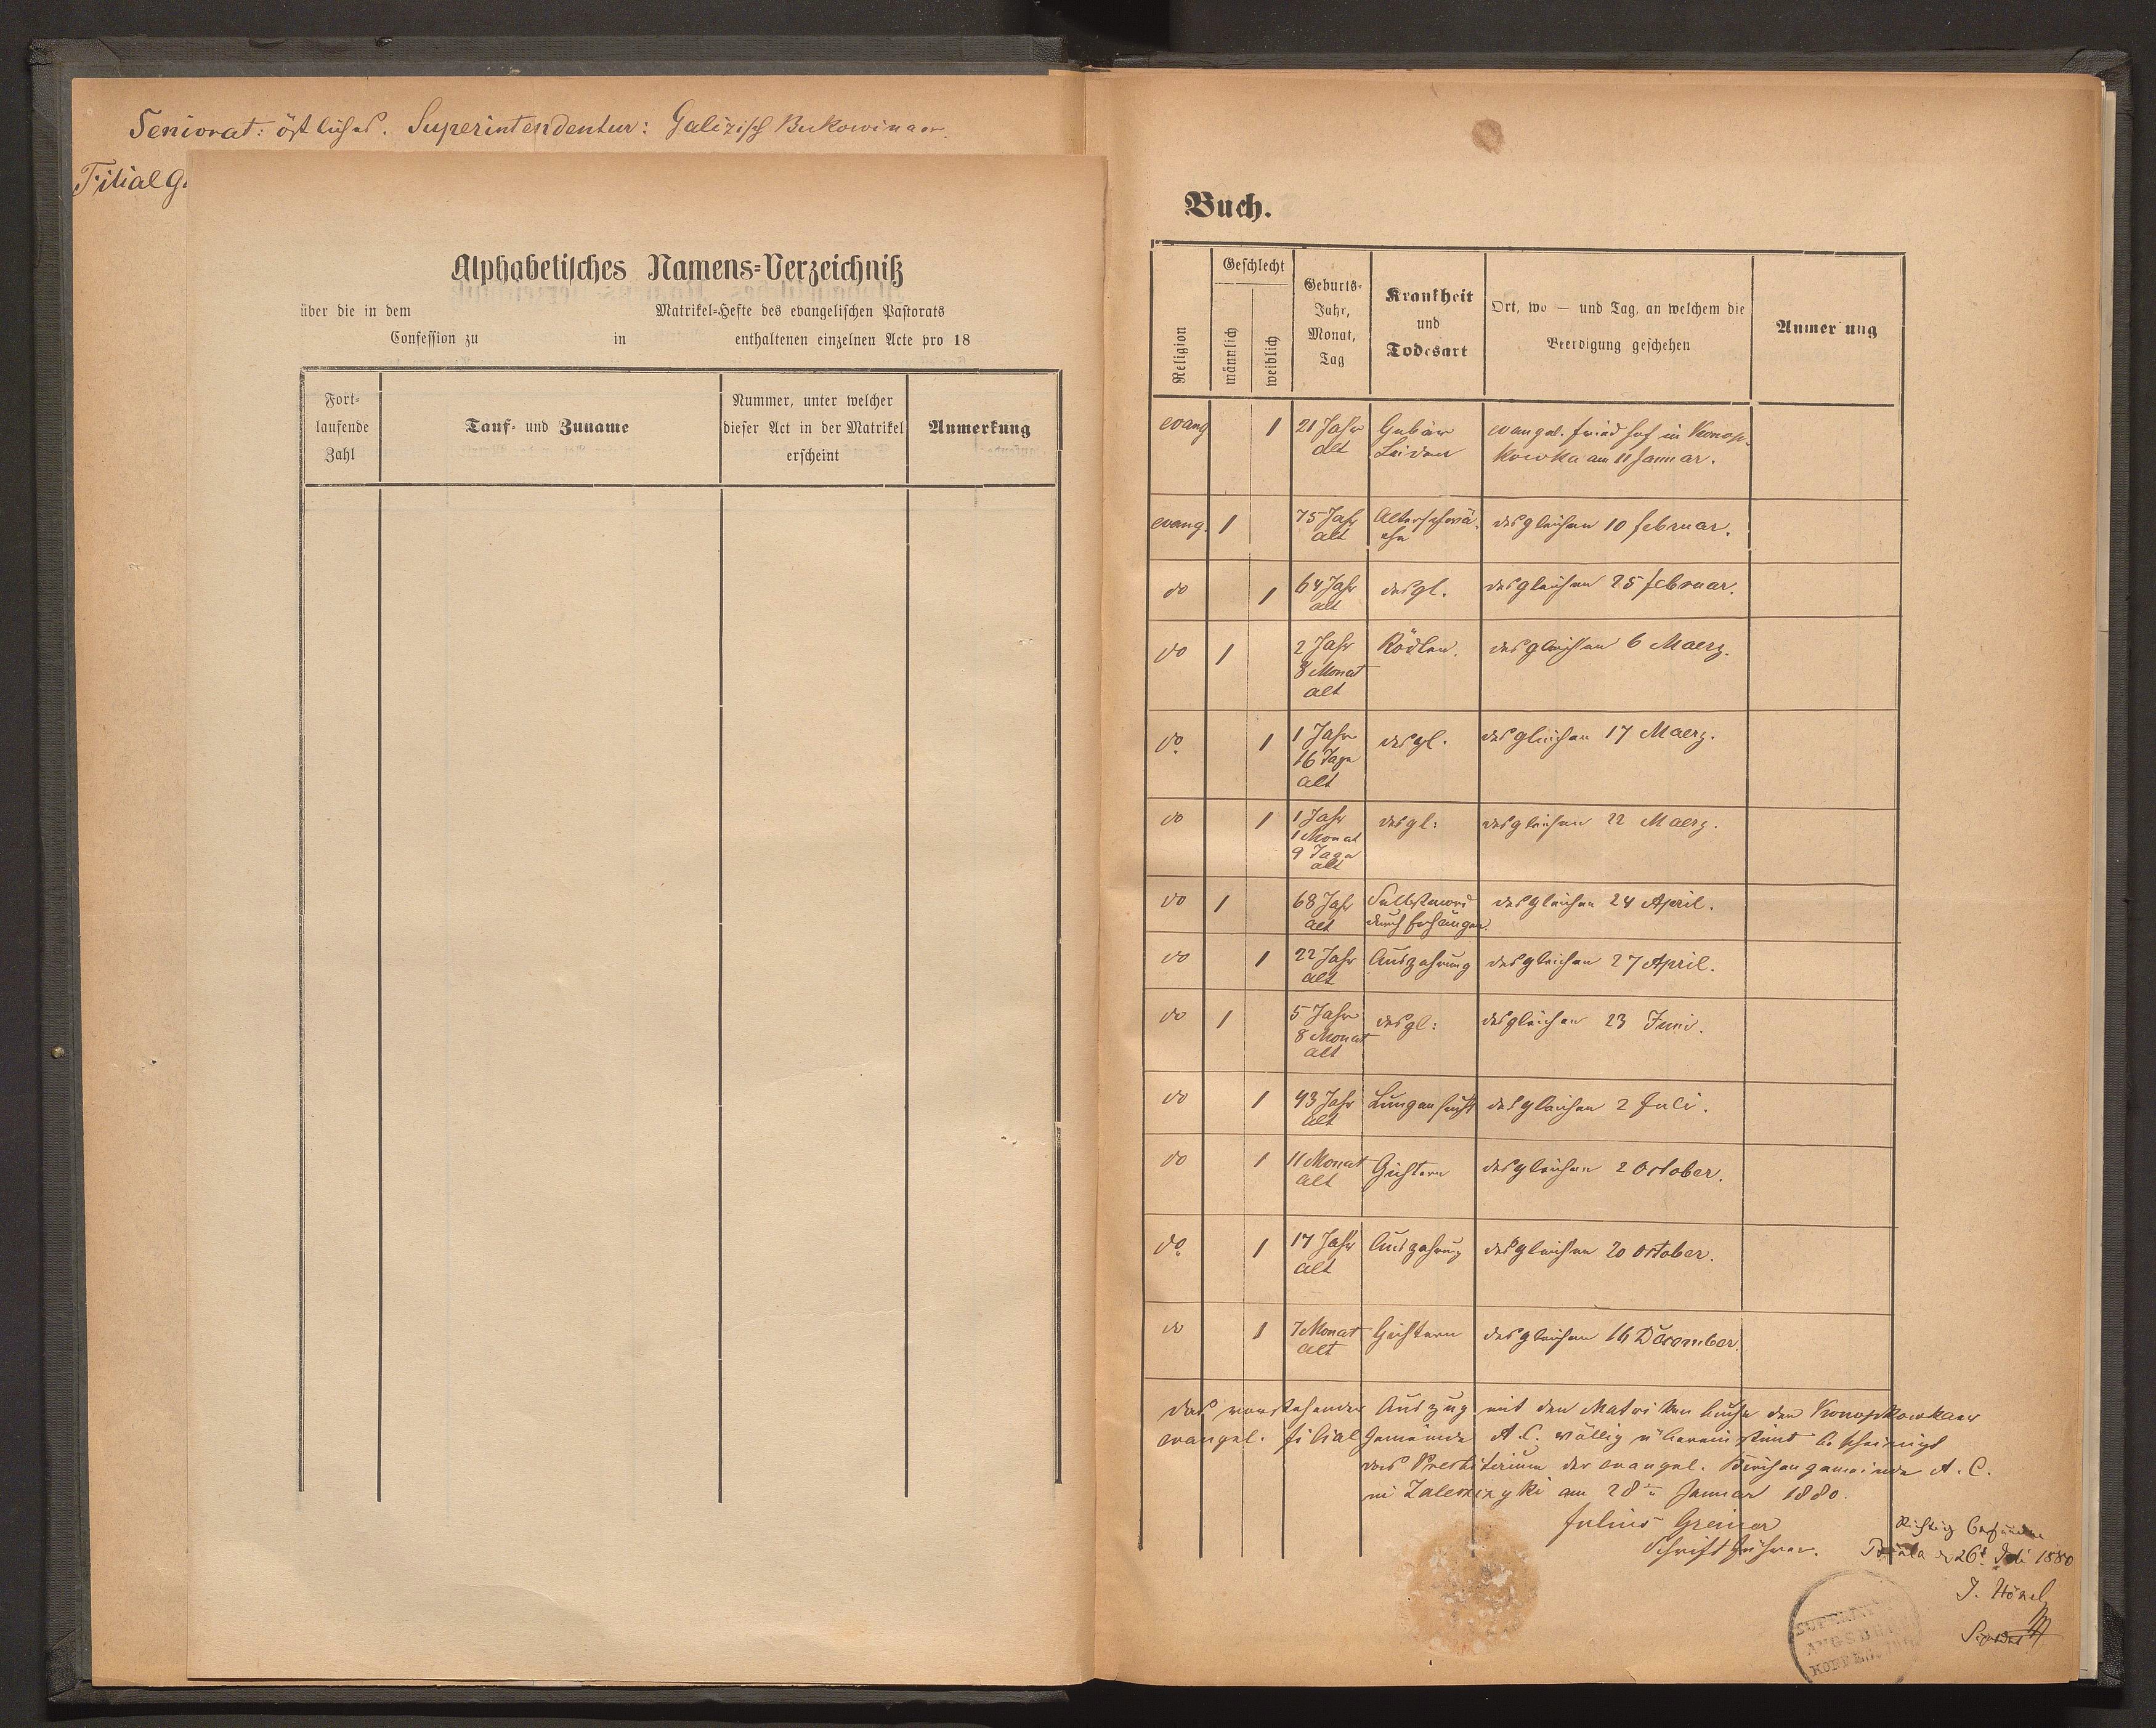 Seniorat: östliches. Superintendentur: Galizisch Bukowinaer.
Filial G.
Alphabetisches Namens-Verzeichniß
über die in dem Matrikel-Hefte des evangelischen Pastorats
Confession zu in enthaltenen einzelnen Acte pro 18
Fort-
laufende
Zahl
Tauf- und Zuname
Nummer, unter welcher
dieser Act in der Matrikel
erscheint
Anmerkung
Buch.
Religion
Geschlecht
männlich
weiblich
Geburts-
Jahr,
Monat,
Tag
Krankheit
und
Todesart
Ort, wo — und Tag, an welchem die
Beerdigung geschehen
Anmer ung
evang 1 21 Jahr Gebär evangel. Friedhof in Konop-
alt Leiden kowka am 11 Januar.
evang. 1 75 Jahr Altersschwä- desgleichen 10 Februar.
alt che
do 1 64 Jahr desgl. desgleichen 25 Februar.
alt
do 1 2 Jahr Röthen. desgleichen 6 Maerz.
8 Monat
alt
do. 1 1 Jahr desgl. desgleichen 17 Maerz.
16 Tage
alt
do 1 1 Jahr desgl: desgleichen 22 Maerz.
1 Monat
9 Tage
alt
do 1 68 Jahr Selbstmord desgleichen 24 April.
alt durch Erhängen.
do 1 22 Jahr Auszehrung desgleichen 27 April.
alt
do 1 5 Jahr desgl: desgleichen 23 Juni.
8 Monat
alt
do 1 43 Jahr Lungensucht desgleichen 2 Juli.
alt
do 1 11 Monat Gichtern desgleichen 2 October.
alt
do. 1 17 Jahr Auszehrung desgleichen 20 October.
alt
do 1 7 Monat Gichtern desgleichen 16 December.
alt
Das vorstehender Auszug mit den Matriken buche der Konopkowkaer
evangel. Filial Gemeinde A. C. völlig übereinstimt bescheinigt
das Presbiterium der evangel. Kirchengemeinde A. C.
in Zaleszczyki am 28ten Januar 1880.
Julius Greiner
Schriftführer.
Richtig befunden
Biala d. 26t. Juli 1880
J. Hönel
SUPERINT
AUGSBUR
KONFE